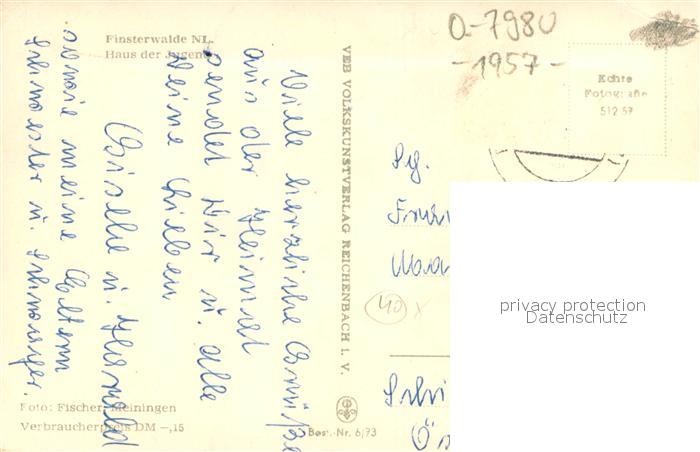 O-7980
-1957-
Finsterwalde NL.
Haus der Jugend
Echte
Fotografie
512 57
Viele herzliche Grüße
aus der Heimat
sendet Dir u. alle
Deine Lieben
Gisela u. Harald
sowie meine Eltern
Schwester u. Schwager.
VEB VOLKSKUNSTVERLAG REICHENBACH I. V.
Fam
40
privacy protection
Datenschutz
Foto: Fischer, Meiningen
Verbraucherpreis DM -,15
Best.-Nr. 6/73